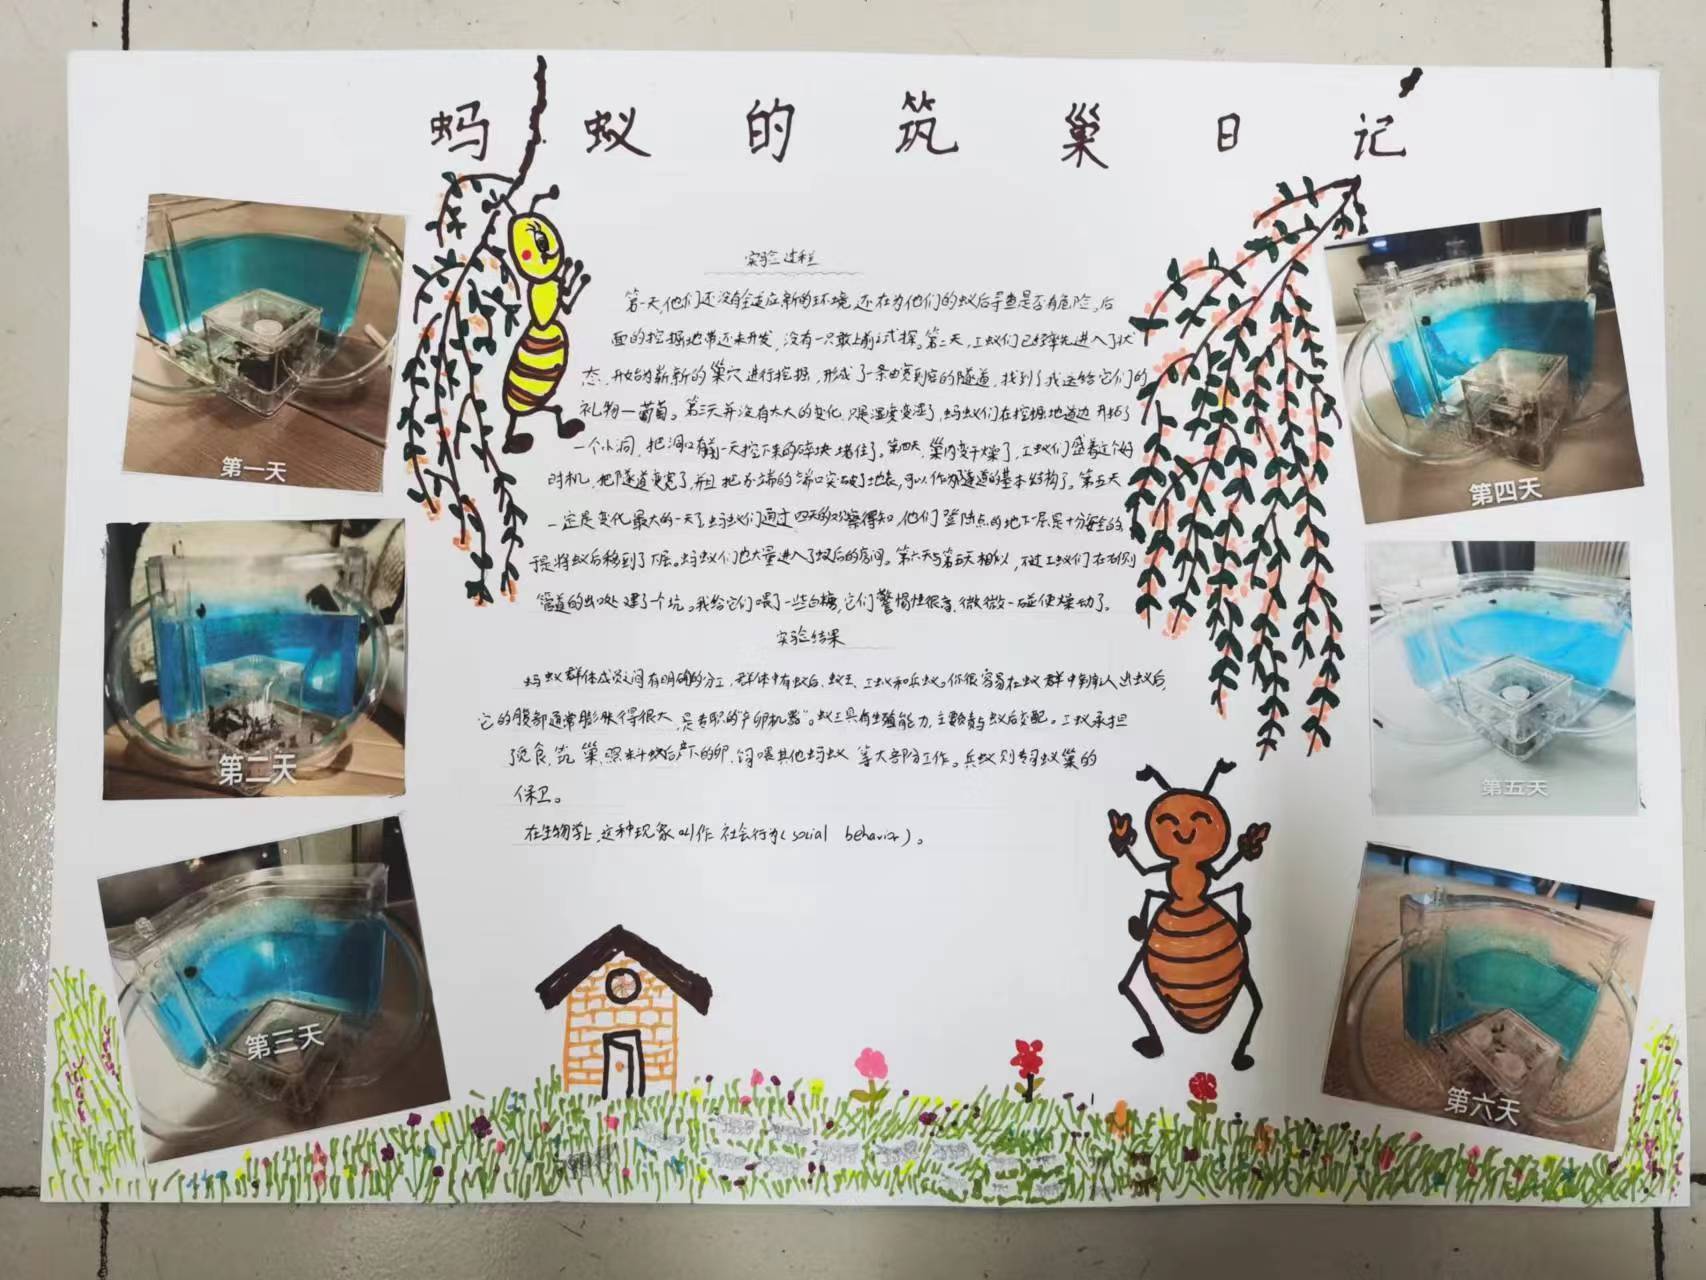 蚂蚁的筑巢日记
实验过程
第一天,他们还没有全适应新的环境,还在为他们的蚁后寻查是否有危险,后
面的挖掘地带还未开发,没有一只敢上前试探。第二天,工蚁们已经率先进入了状
态,开始为崭新的巢穴进行挖掘,形成了一条由宽到窄的隧道,找到了我送给它们的
礼物—葡萄。第三天并没有太大的变化,只是湿度变湿了,蚂蚁们在挖掘地道边开拓了
一个小洞,把洞口有前一天挖下来的碎块堵住了。第四天,巢内变干燥了,工蚁们盛着这个好
时机,把隧道变宽了,并且把末端的端口突破了地表,可以作为隧道的基本结构了。第五天
一定是变化最大的一天了,蚂蚁们通过四天的观察得知,他们登陆点的地下一层是十分安全的,
于是将蚁后移到了下层。蚂蚁们也大量进入了蚁后的房间。第六天与第五天相似,不过工蚁们在右侧
管道的出口处建了个坑。我给它们喂了一些白糖,它们警惕性很高,微微一碰便燥动了。
实验结果
蚂蚁群体成员之间有明确的分工,群体中有蚁后、蚁王、工蚁和兵蚁。你很容易在蚁群中辨认出蚁后,
它的腹部通常膨胀得很大,是专职的“产卵机器”。蚁王具有生殖能力,主要负责与蚁后交配。工蚁承担
觅食、筑巢、照料蚁后产下的卵、饲喂其他蚂蚁等大部分工作。兵蚁则专司蚁巢的
保卫。
在生物学上,这种现象叫作社会行为(social behavior)。
第一天
第二天
第三天
第四天
第五天
第六天